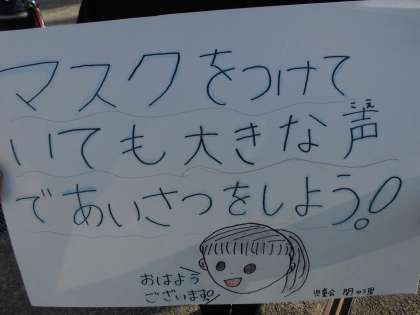 マスクをつけて
いても大きな声
こえ
であいさつをしよう!
おはよう
ございます!
児童会